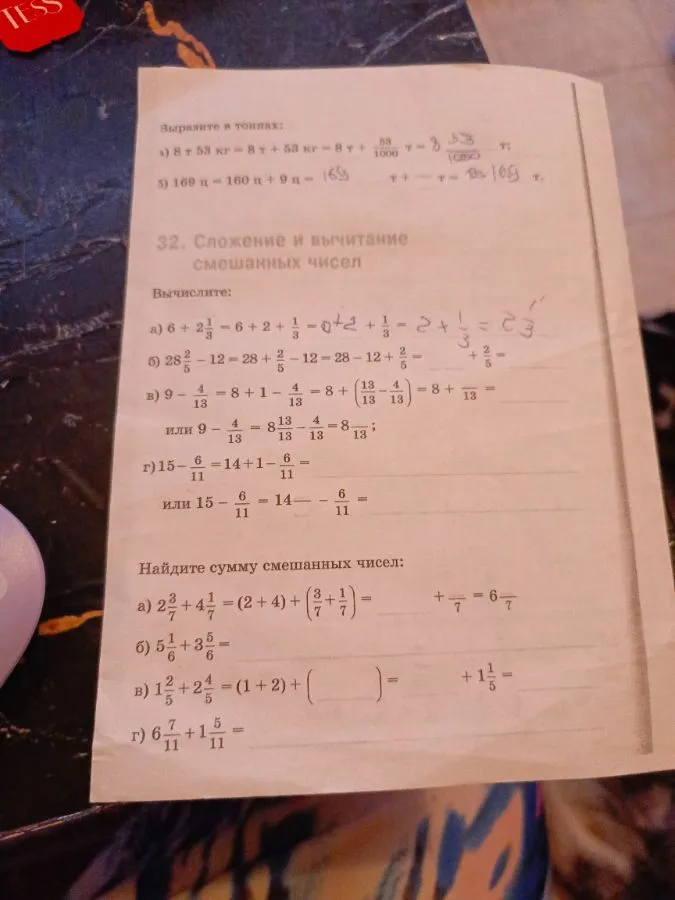 TESS
Выразите в тоннах:
а) 8 т 53 кг = 8 т + 53 кг = 8 т + 53/1000 т = 8 53/1000 т;
б) 169 ц = 160 ц + 9 ц = 169 т + — т = 169 т.
32. Сложение и вычитание
смешанных чисел
Вычислите:
а) 6 + 2 1/3 = 6 + 2 + 1/3 = 0+2 + 1/3 = 2 + 1/3 = 2 1/3
б) 28 2/5 − 12 = 28 + 2/5 − 12 = 28 − 12 + 2/5 = ___ + 2/5 = ___
в) 9 − 4/13 = 8 + 1 − 4/13 = 8 + (13/13 − 4/13) = 8 + —/13 = ___
или 9 − 4/13 = 8 13/13 − 4/13 = 8 —/13;
г) 15 − 6/11 = 14 + 1 − 6/11 = ___
или 15 − 6/11 = 14 — − 6/11 = ___
Найдите сумму смешанных чисел:
а) 2 3/7 + 4 1/7 = (2 + 4) + (3/7 + 1/7) = ___ + —/7 = 6 —/7
б) 5 1/6 + 3 5/6 = ___
в) 1 2/5 + 2 4/5 = (1 + 2) + (___) = ___ + 1 1/5 = ___
г) 6 7/11 + 1 5/11 = ___